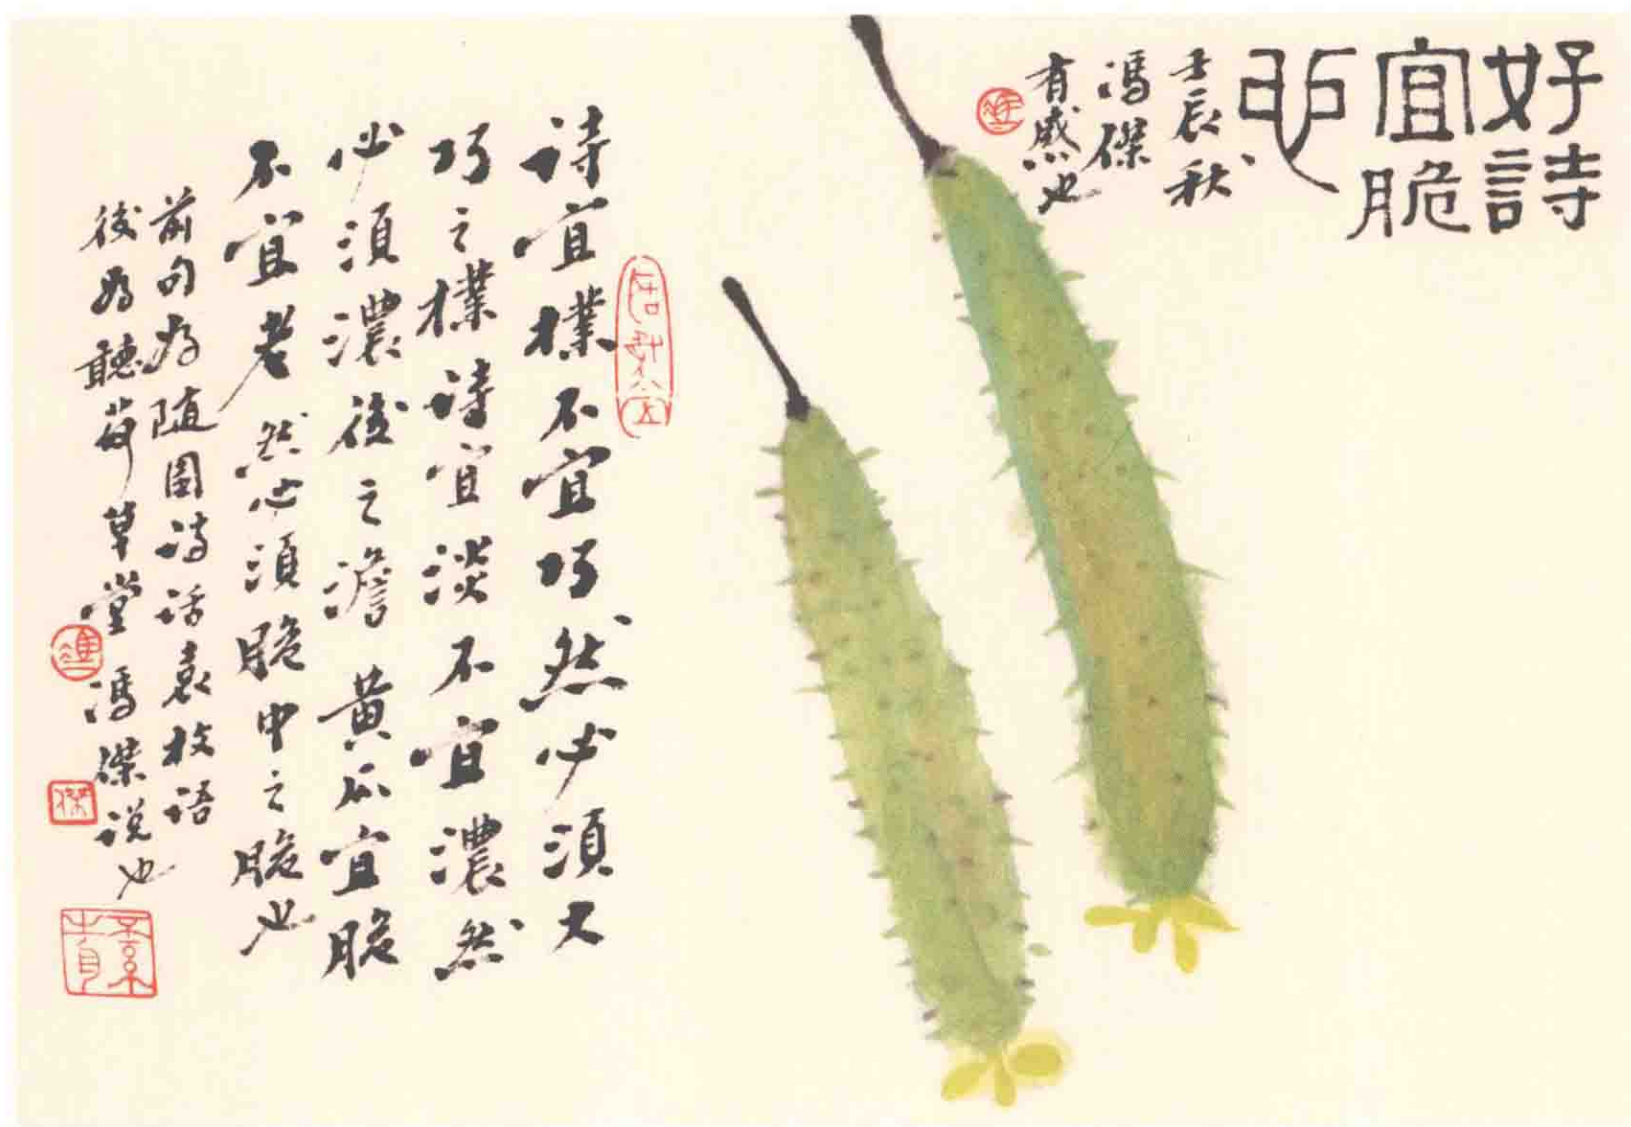 好詩
宜脆
也
壬辰秋
馮傑
有感也
诗宜樸不宜巧然必須大
巧之樸诗宜淡不宜濃然
必須濃後之澹黄瓜宜脆
不宜老然必須脆中之脆也
前句为随園诗话袁枚语
後为聽荷草堂馮傑说也